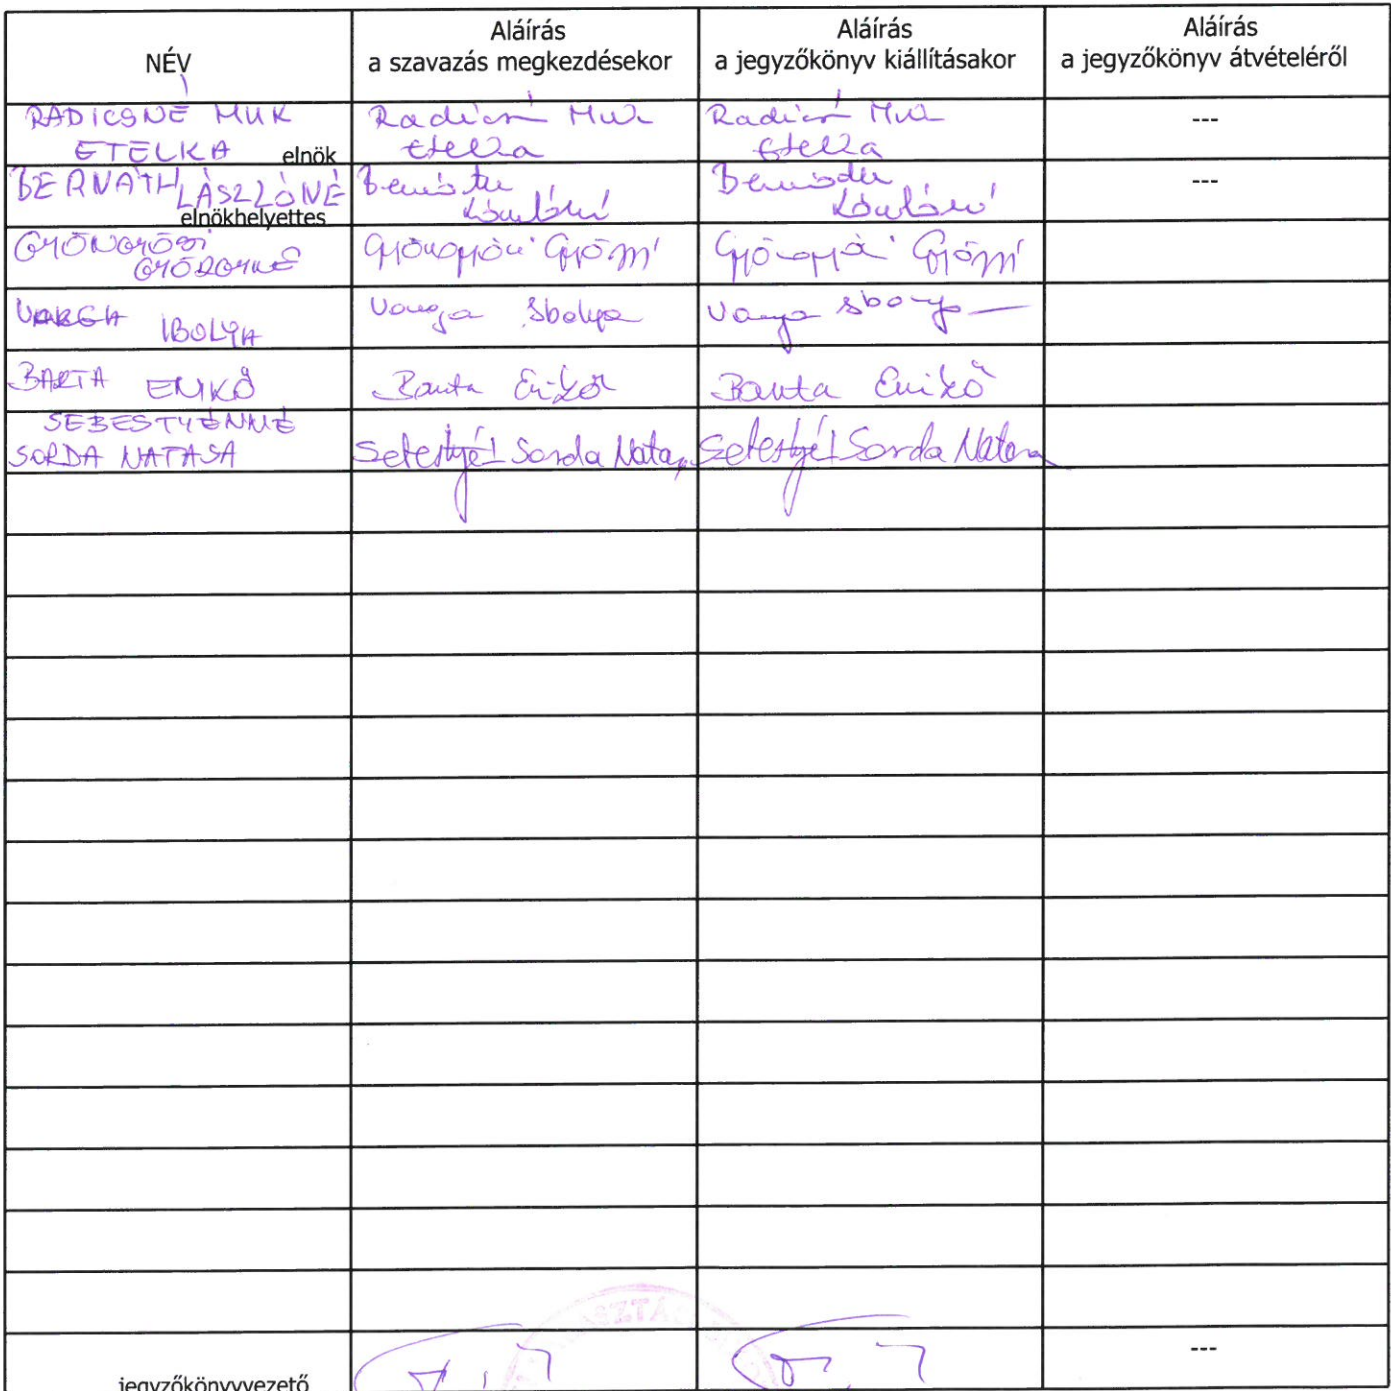 NÉV
Aláírás
a szavazás megkezdésekor
Aláírás
a jegyzőkönyv kiállításakor
Aláírás
a jegyzőkönyv átvételéről
RADICSNÉ MUK
ETELKA elnök
Radicsné Muk
Etelka
Radicsné Muk
Etelka
---
BERNÁTH LÁSZLÓNÉ
elnökhelyettes
Bernáth
Lászlóné
Bernáth
Lászlóné
---
GYÖNGYÖSI
GYÖRGYNÉ
Gyöngyösi Györgyné
Gyöngyösi Györgyné
VARGA IBOLYA
Varga Ibolya
Varga Ibolya
BARTA ENIKŐ
Barta Enikő
Barta Enikő
SEBESTYÉNNÉ
SORDA NATASA
Sebestyénné Sorda Natasa
Sebestyénné Sorda Natasa
jegyzőkönyvvezető
---